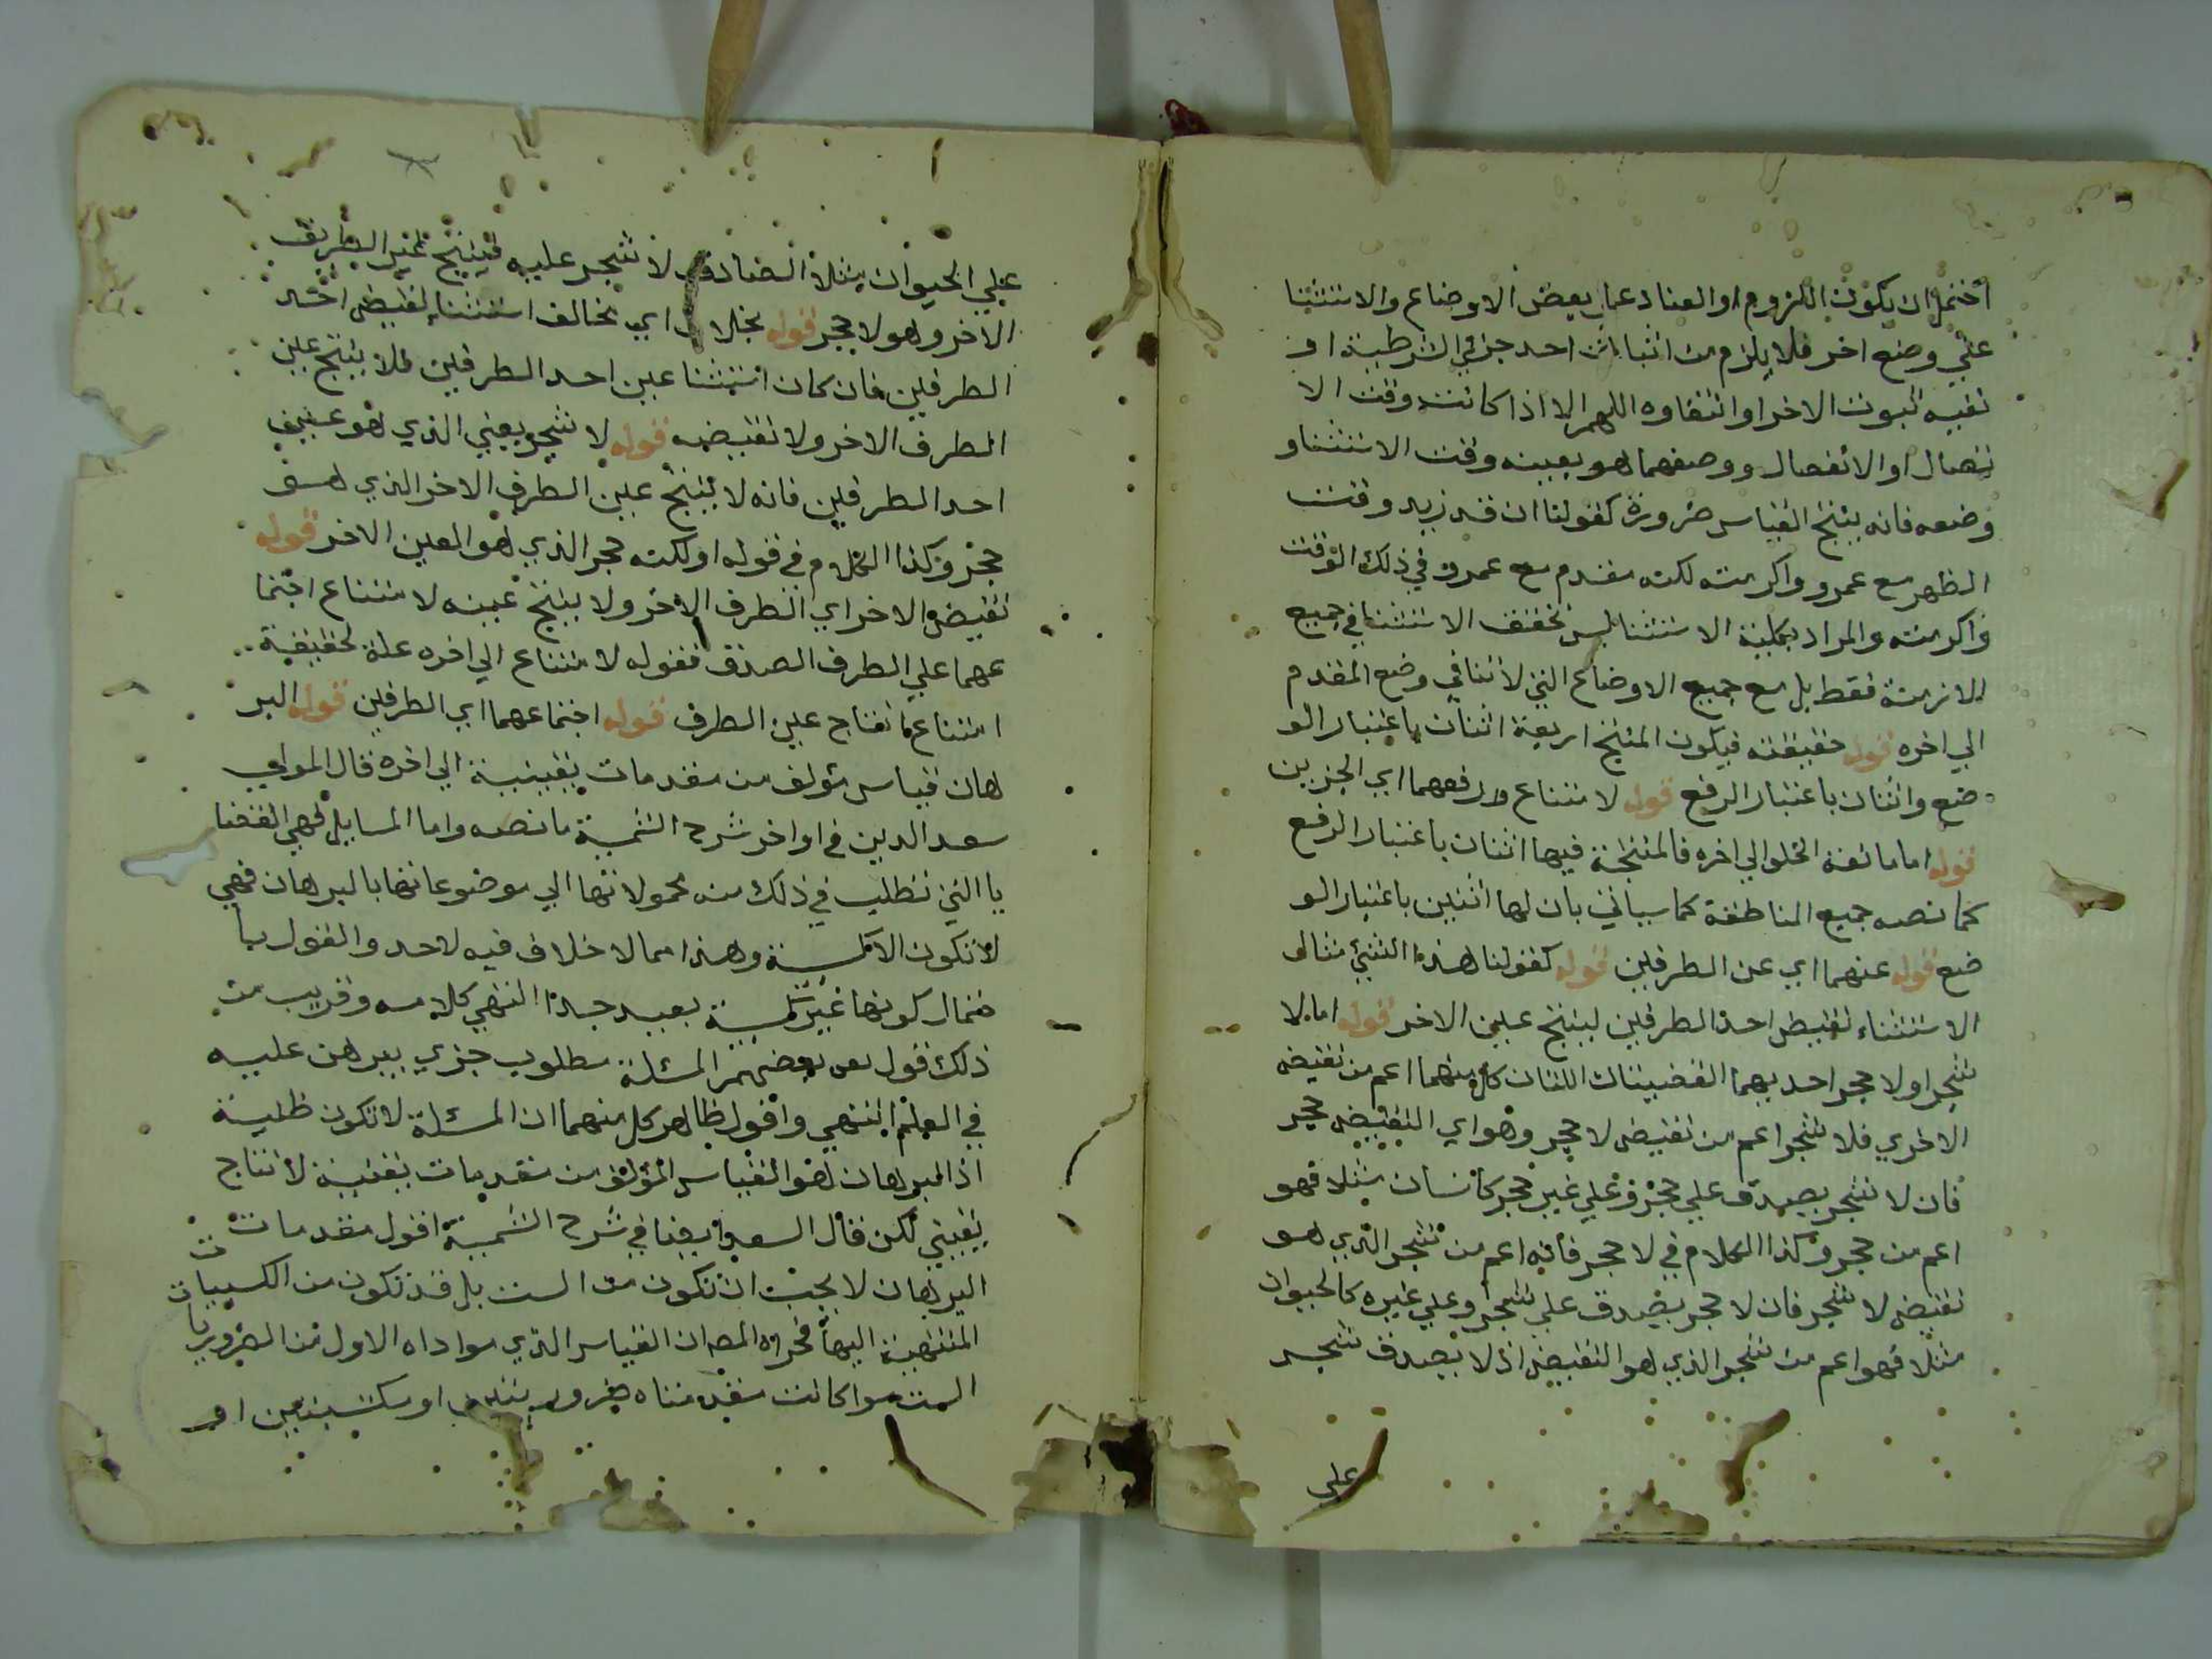 احتمل ان يكون اللزوم او العناد علي بعض الاوضاع والاستثنا
علي وضع اخر فلا يلزم من اثبات احد جزئي الشرطية او
نفيه ثبوت الاخر او انتفاوه اللهم الا اذا كانت وقت الا
تصال او الانفصال ووصفهما هو بعينه وقت الاستثنا و
وضعه فانه ينتج القياس ضرورة كقولنا ان قدم زيد وقت
الظهر مع عمرو واكرمته لكنه مقدم مع عمرو في ذلك الوقت
فاكرمته والمراد بكلية الاستثنا ليس تحقق الاستثنا في جميع
الازمنة فقط بل مع جميع الاوضاع التي لا تنافي وضع المقدم
الي اخره قوله حقيقته فيكون المنتج اربعة اثنان باعتبار الو
ضع واثنان باعتبار الرفع قوله لامتناع رفعهما اي الجزين
قوله اما مانعة الخلو الي اخره فالمنتجة فيها اثنان باعتبار الرفع
كما نصه جميع المناطقة كما سياتي بان لها اثنين باعتبار الو
ضع قوله عنهما اي عن الطرفين قوله كقولنا هذا الشئ مثالو
الاستثناء نقيض احد الطرفين لينتج عين الاخر قوله اما لا
شجر او لا حجر احد بهما القضيتان اللتان كل منهما اعم من نقيضه
الاخري فلا شجر اعم من نقيض لا حجر وهو اي النقيض حجر
فان لا شجر يصدق علي حجر وعلي غير حجر كانسان مثلا فهو
اعم من حجر وكذا الكلام في لا حجر فانه اعم من شجر الذي هو
نقيض لا شجر فان لا حجر يصدق علي شجر وعلي غيره كالحيوان
مثلا فهو اعم من شجر الذي هو النقيض اذ لا يصدق شجر
علي
علي الحيوان مثلا الصادق لا شجر عليه فينتج عين الطريق
الاخر وهو لا حجر قوله بخلاف اي تخالف استثناء نقيض احد
الطرفين فان كان استثنا عين احد الطرفين فلا ينتج عين
الطرف الاخر ولا نقيضه قوله لا شجر يعني الذي هو عين
احد الطرفين فانه لا ينتج عين الطرف الاخر الذي هو
حجر وكذا الكلام في قوله او لكنه حجر الذي هو العين الاخر قوله
نقيض الاخر اي الطرف الاخر ولا ينتج عينه لامتناع اجتما
عهما علي الطرف الصدق فقوله لامتناع الي اخره علة لحقيقية
امتناع انتاج عين الطرف قوله اجتماعهما اي الطرفين قوله البر
هان قياس مؤلف من مقدمات يقينية الي اخره قال المولي
سعد الدين في اواخر شرح الشمسية ما نصه واما المسايل فهي القضا
يا التي تطلب في ذلك من محمولاتها الي موضوعاتها بالبرهان فهي
لا تكون الا كسبية وهذا مما لا خلاف فيه لاحد والقول با
حتمال كونها غير كسبية بعيد جدا انتهي كلامه وقريب من
ذلك قول بعضهم المسئلة مطلوب جزي يبرهن عليه
في العلم انتهي واقول ظاهر كل منهما ان المسئلة لا تكون ظنية
اذ البرهان هو القياس المؤلف من مقدمات يقينية لانتاج
يقيني لكن قال السعد ايضا في شرح الشمسية اقول مقدمات
البرهان لا يجب ان تكون من الست بل قد تكون من الكسبيات
المنتهية اليها فمراد المص ان القياس الذي مواداه الاول من الضروريات
الست سوا كانت مقدمتاه ضروريتين او مكتسبتين او